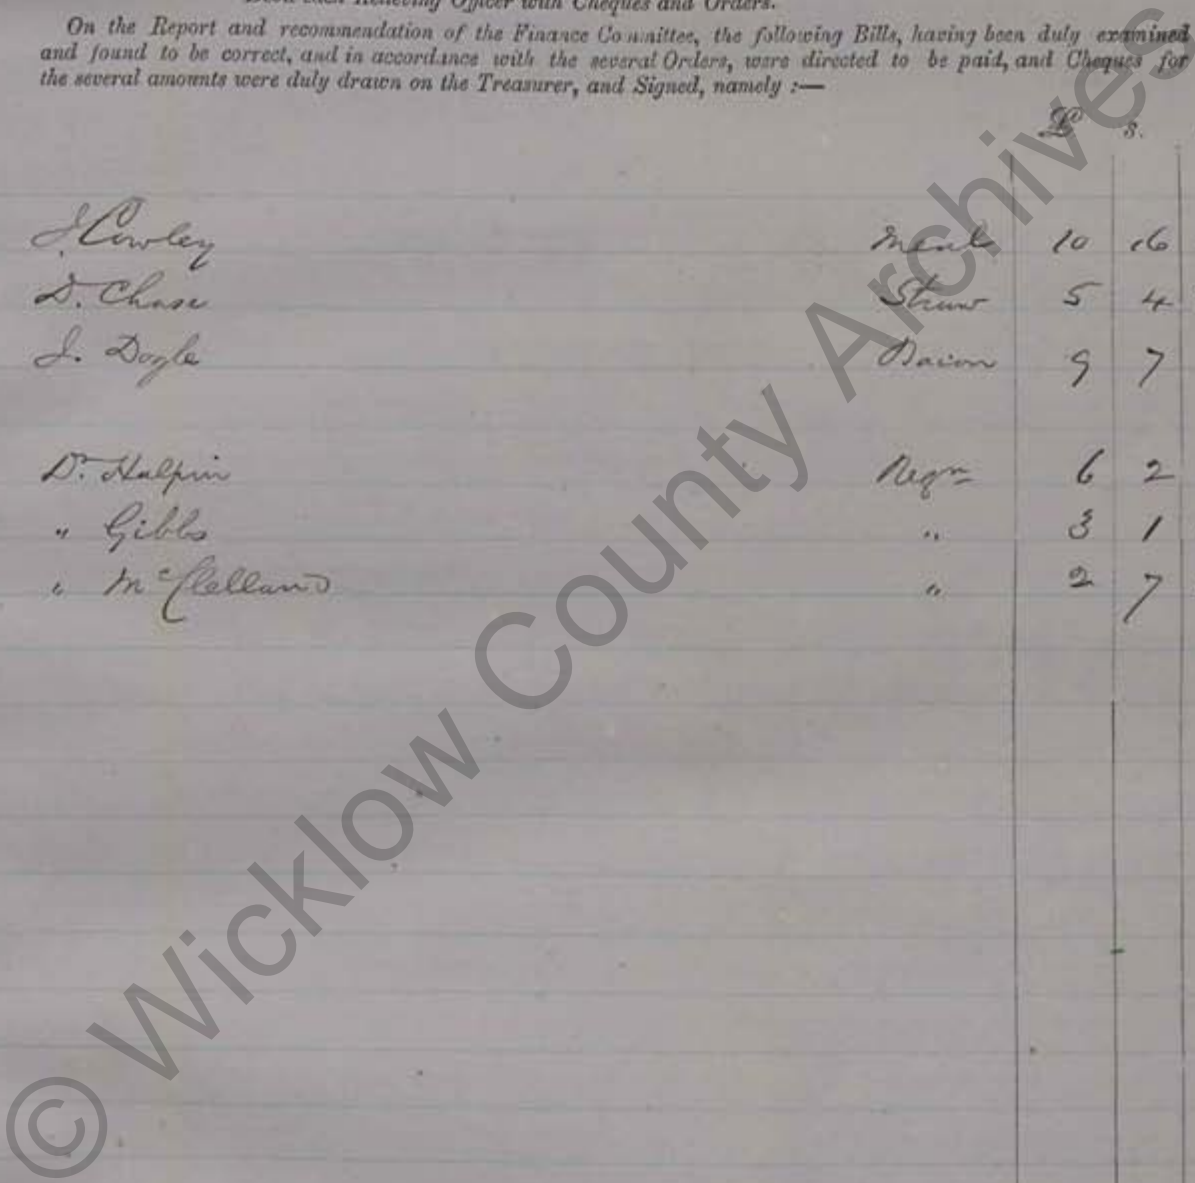 Officer with Cheques and Orders.
On the Report and recommendation of the Finance Committee, the following Bills, having been duly examined
and found to be correct, and in accordance with the several Orders, were directed to be paid, and Cheques for
the several amounts were duly drawn on the Treasurer, and Signed, namely :—
£ s.
J. Cowley Meal 10 16
D. Chase Straw 5 4
J. Doyle Bacon 9 7
Dr. Halpin Regn 6 2
" Gibbs " 3 1
" McClelland " 2 7
© Wicklow County Archives